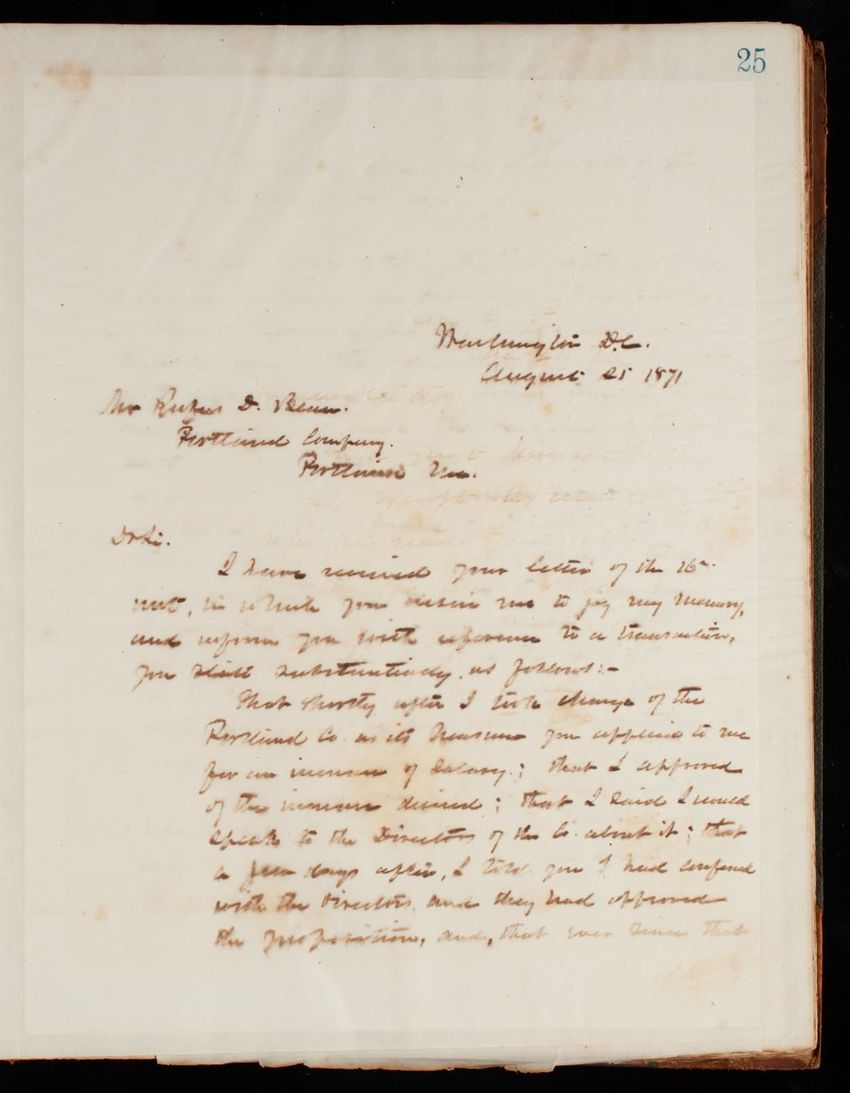 25
Washington D.C.
August 25 1871
Mr Rufus D. Bean.
Portland Company.
Portland Me.
Dr Si.
I have received your letter of the 16th
inst, in which you desire me to jog my memory,
and inform you with reference to a transaction,
you state substantially, as follows:-
That shortly after I took charge of the
Portland Co. as its Treasurer you applied to me
for an increase of salary; that I approved
of the increase desired; that I said I would
speak to the Directors of the Co. about it; that
a few days after, I told you I had conferred
with the Directors, and they had approved
the proposition, and, that ever since that